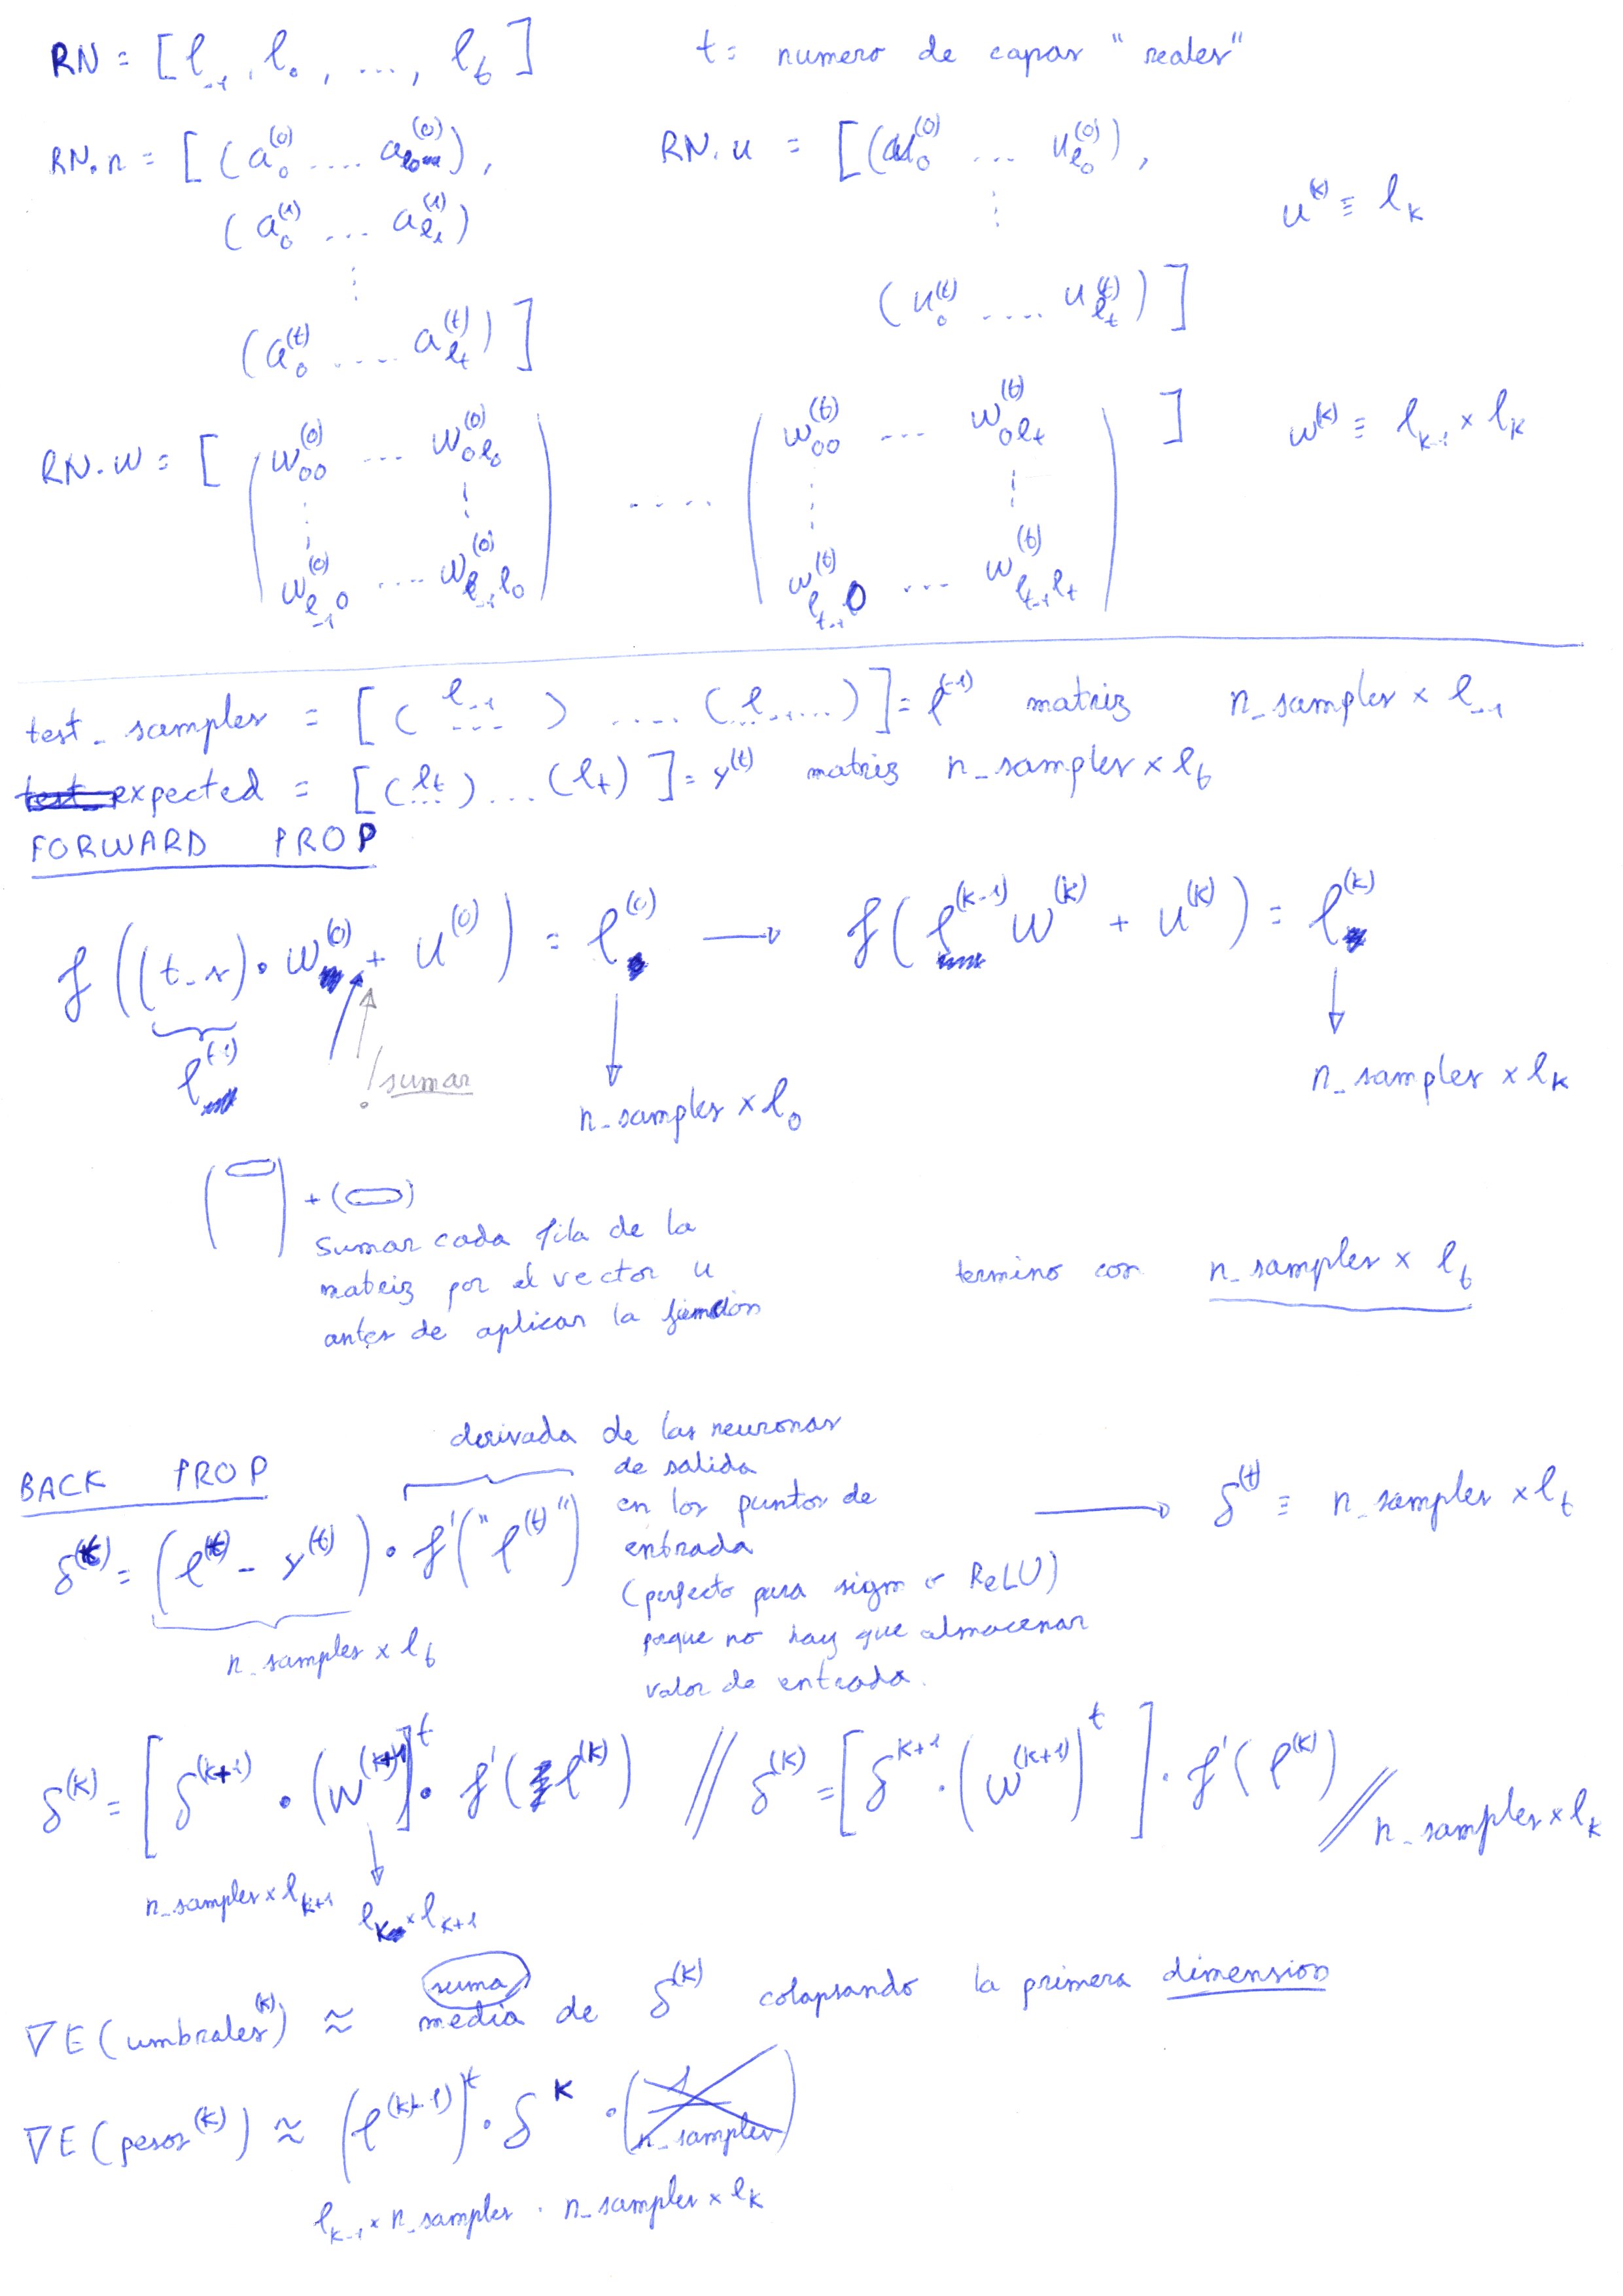 RN = [l₋₁, l₀, ..., l_t]   t = numero de capas "reales"
RN.n = [(a₀⁽⁰⁾ .... a_l₀⁽⁰⁾),   RN.u = [(u₀⁽⁰⁾ ... u_l₀⁽⁰⁾),
(a₀⁽¹⁾ ... a_l₁⁽¹⁾)   ⋮   u⁽ᵏ⁾ ≡ l_k
⋮   (u₀⁽ᵗ⁾ .... u_l_t⁽ᵗ⁾)]
(a₀⁽ᵗ⁾ .... a_l_t⁽ᵗ⁾)]
RN.w = [ (w₀₀⁽⁰⁾ ... w₀l₀⁽⁰⁾   ....   (w₀₀⁽ᵗ⁾ ... w₀l_t⁽ᵗ⁾ ]   w⁽ᵏ⁾ ≡ l_{k-1} × l_k
⋮ ⋮   ⋮ ⋮
w_{l₋₁ 0}⁽⁰⁾ .... w_{l₋₁ l₀}⁽⁰⁾)   w_{l_{t-1} 0}⁽ᵗ⁾ ... w_{l_{t-1} l_t}⁽ᵗ⁾)
test_samples = [( l₋₁ ... ) .... (l₋₁....)] = l⁽⁻¹⁾ matriz n_samples × l₋₁
expected = [(l_t ...) ... (l_t)] = y⁽ᵗ⁾ matriz n_samples × l_t
FORWARD PROP
f((t_s) · w⁽⁰⁾ + u⁽⁰⁾) = l⁽⁰⁾ → f(l⁽ᵏ⁻¹⁾ w⁽ᵏ⁾ + u⁽ᵏ⁾) = l⁽ᵏ⁾
l⁽⁻¹⁾   ! sumar   n_samples × l₀   n_samples × l_k
( ) + ( )
Sumar cada fila de la
matriz por el vector u
antes de aplicar la función
termino con n_samples × l_t
BACK PROP
derivada de las neuronas
de salida
en los puntos de
entrada
(perfecto para sigm o ReLU)
porque no hay que almacenar
valor de entrada.
δ⁽ᵗ⁾ = (l⁽ᵗ⁾ - y⁽ᵗ⁾) · f'("l⁽ᵗ⁾")   → δ⁽ᵗ⁾ ≡ n_samples × l_t
n_samples × l_t
δ⁽ᵏ⁾ = [δ⁽ᵏ⁺¹⁾ · (w⁽ᵏ⁺¹⁾]ᵗ · f'(l⁽ᵏ⁾) // δ⁽ᵏ⁾ = [δᵏ⁺¹ · (w⁽ᵏ⁺¹⁾)ᵗ] · f'(l⁽ᵏ⁾) // n_samples × l_k
n_samples × l_{k+1}   l_k × l_{k+1}
suma
∇E(umbrales⁽ᵏ⁾) ≈ media de δ⁽ᵏ⁾ colapsando la primera dimension
∇E(pesos⁽ᵏ⁾) ≈ (l⁽ᵏ⁻¹⁾)ᵗ · δᵏ · (1/n_samples)
l_{k-1} × n_samples · n_samples × l_k